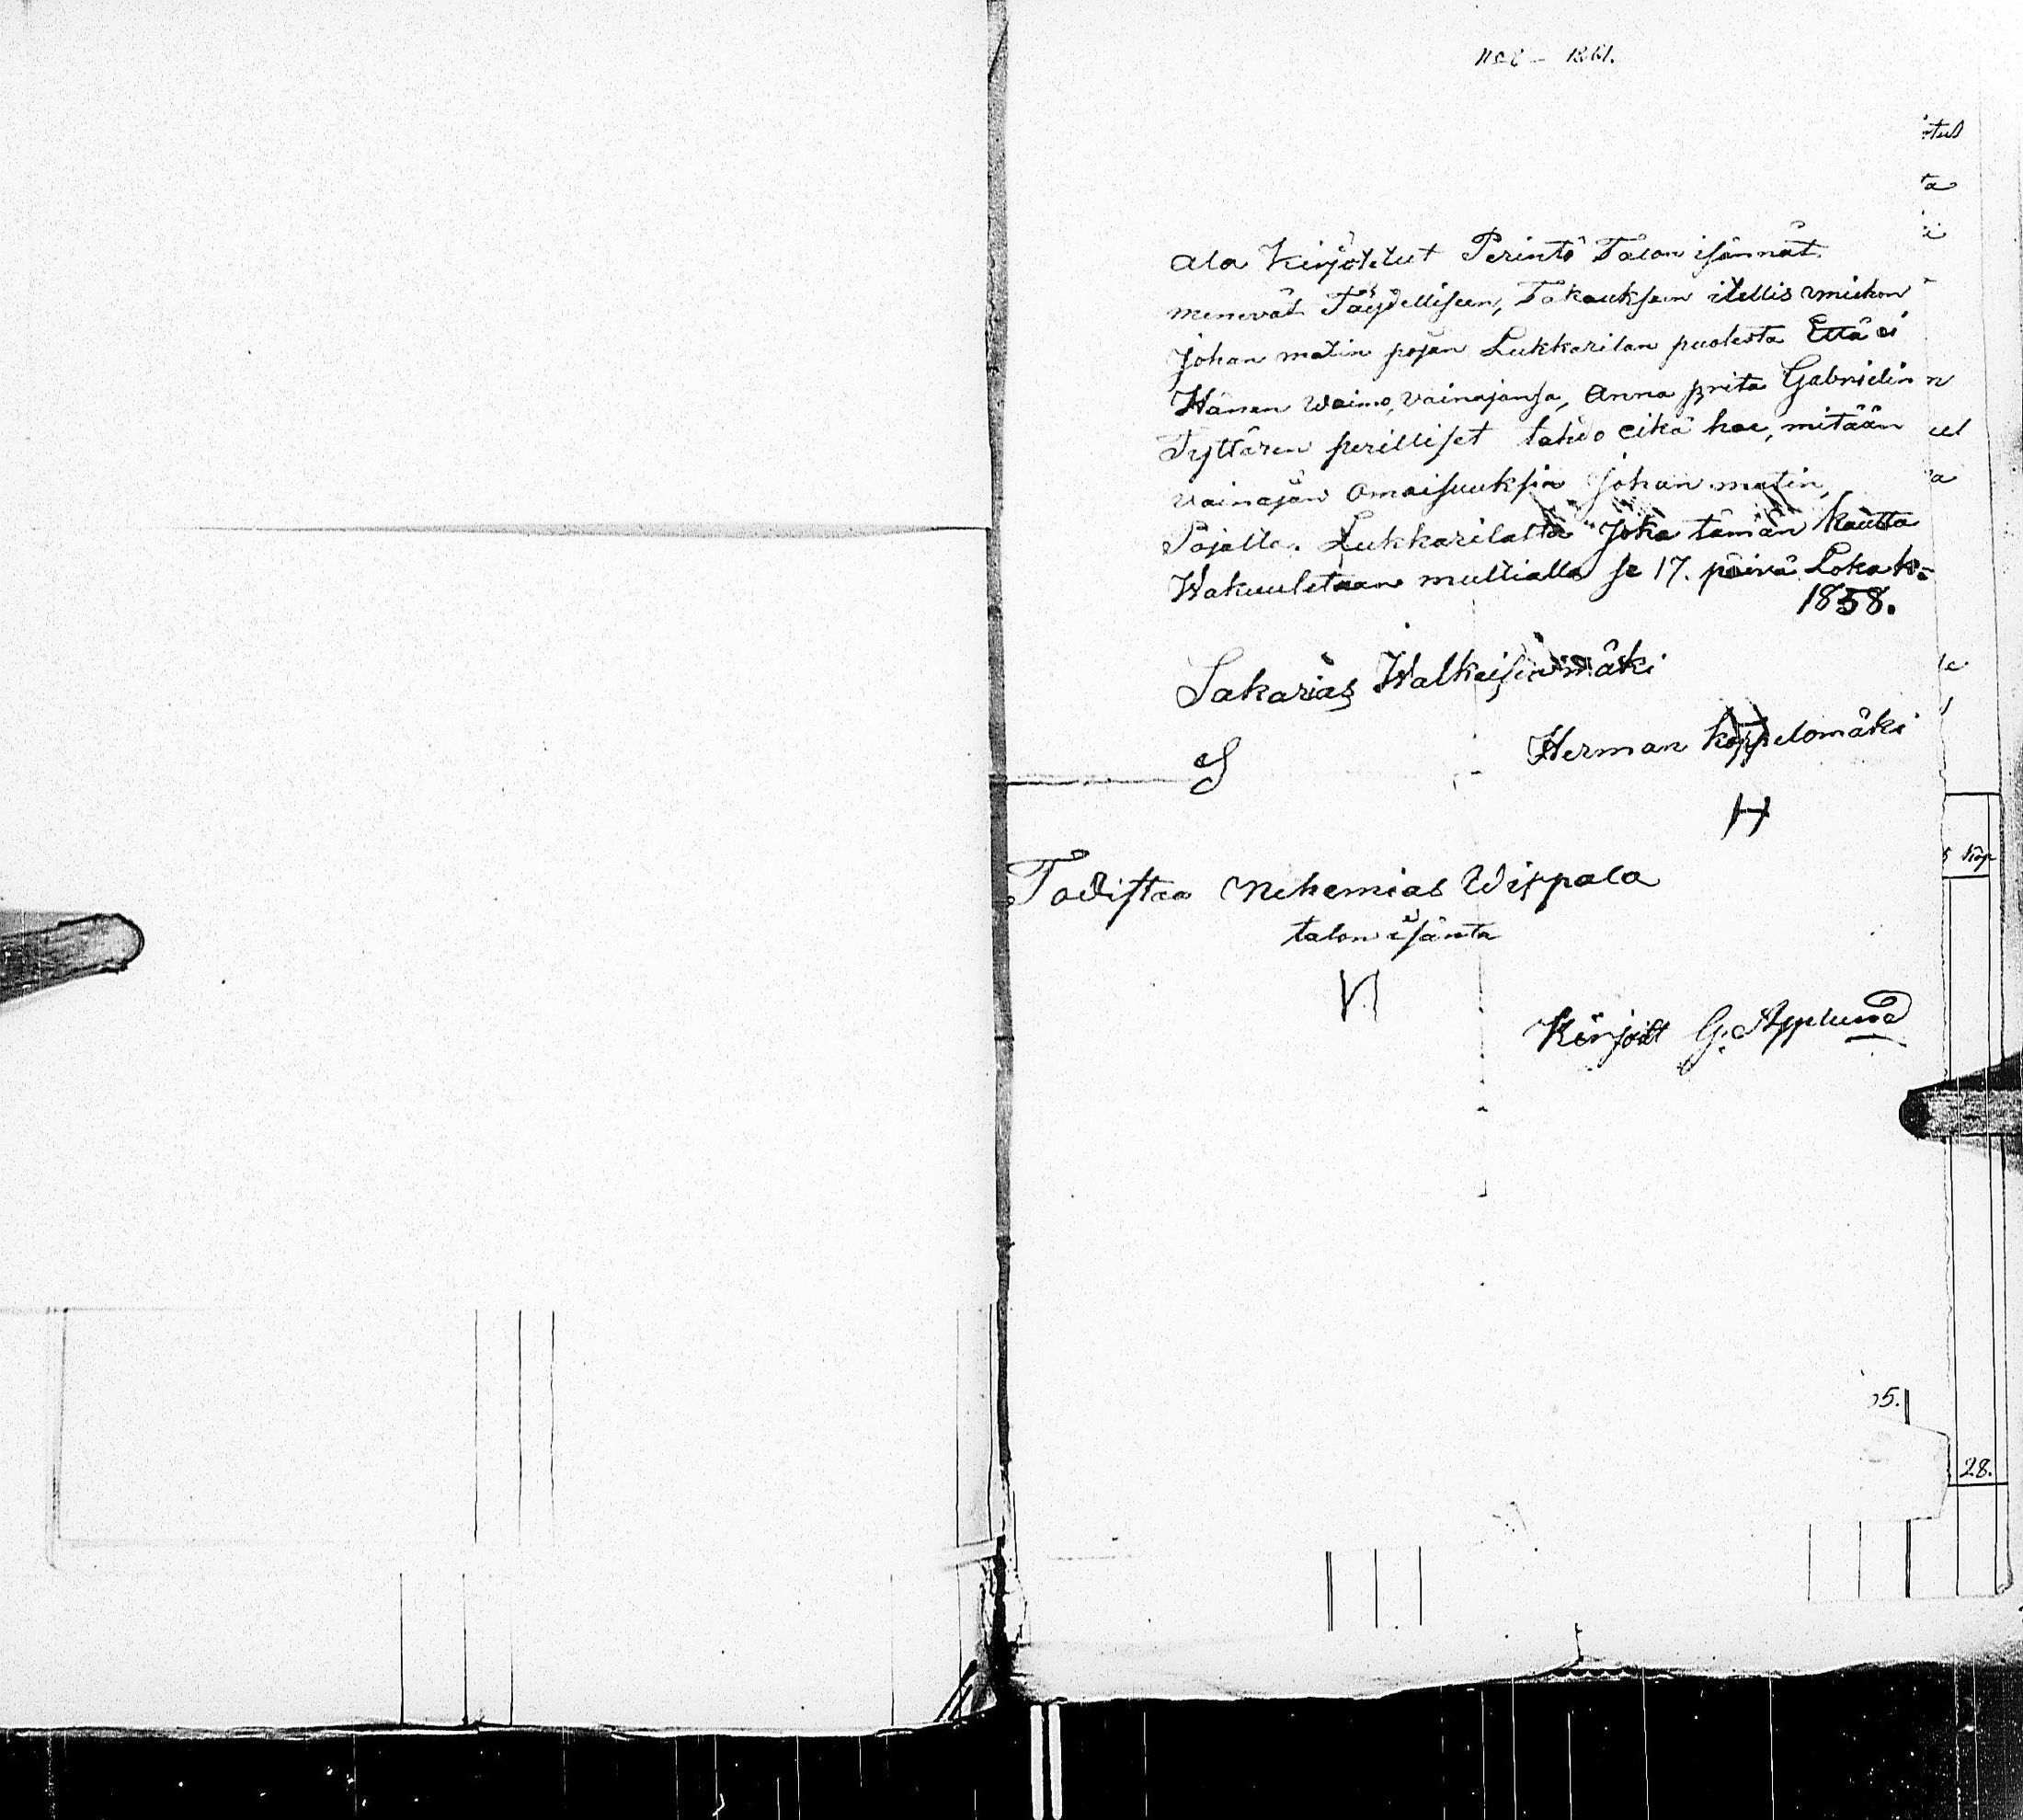 Ala Kirjotetut Perintö Talon isännät
menevät Täydelliseen, Takaukseen itellis miehen
Johan matin pojan Lukkarilan puolesta Että ei
Hänen Waimo, vainajansa, Anna prita Gabrielin
Tyttären perilliset tahdo eikä hae, mitään
vainajan omaisuuksia Johan matin,
Pojalta. Lukkarilalta Joka tämän kautta
Wakuutetaan multialla se 17. päivä Lokak:
1858.
Sakarias Walkeisenmäki
S
Herman koppelomäki
H
Todistaa Nehemias Wippala
talon isäntä
N
Kirjoitt G. Applund
5.
28.